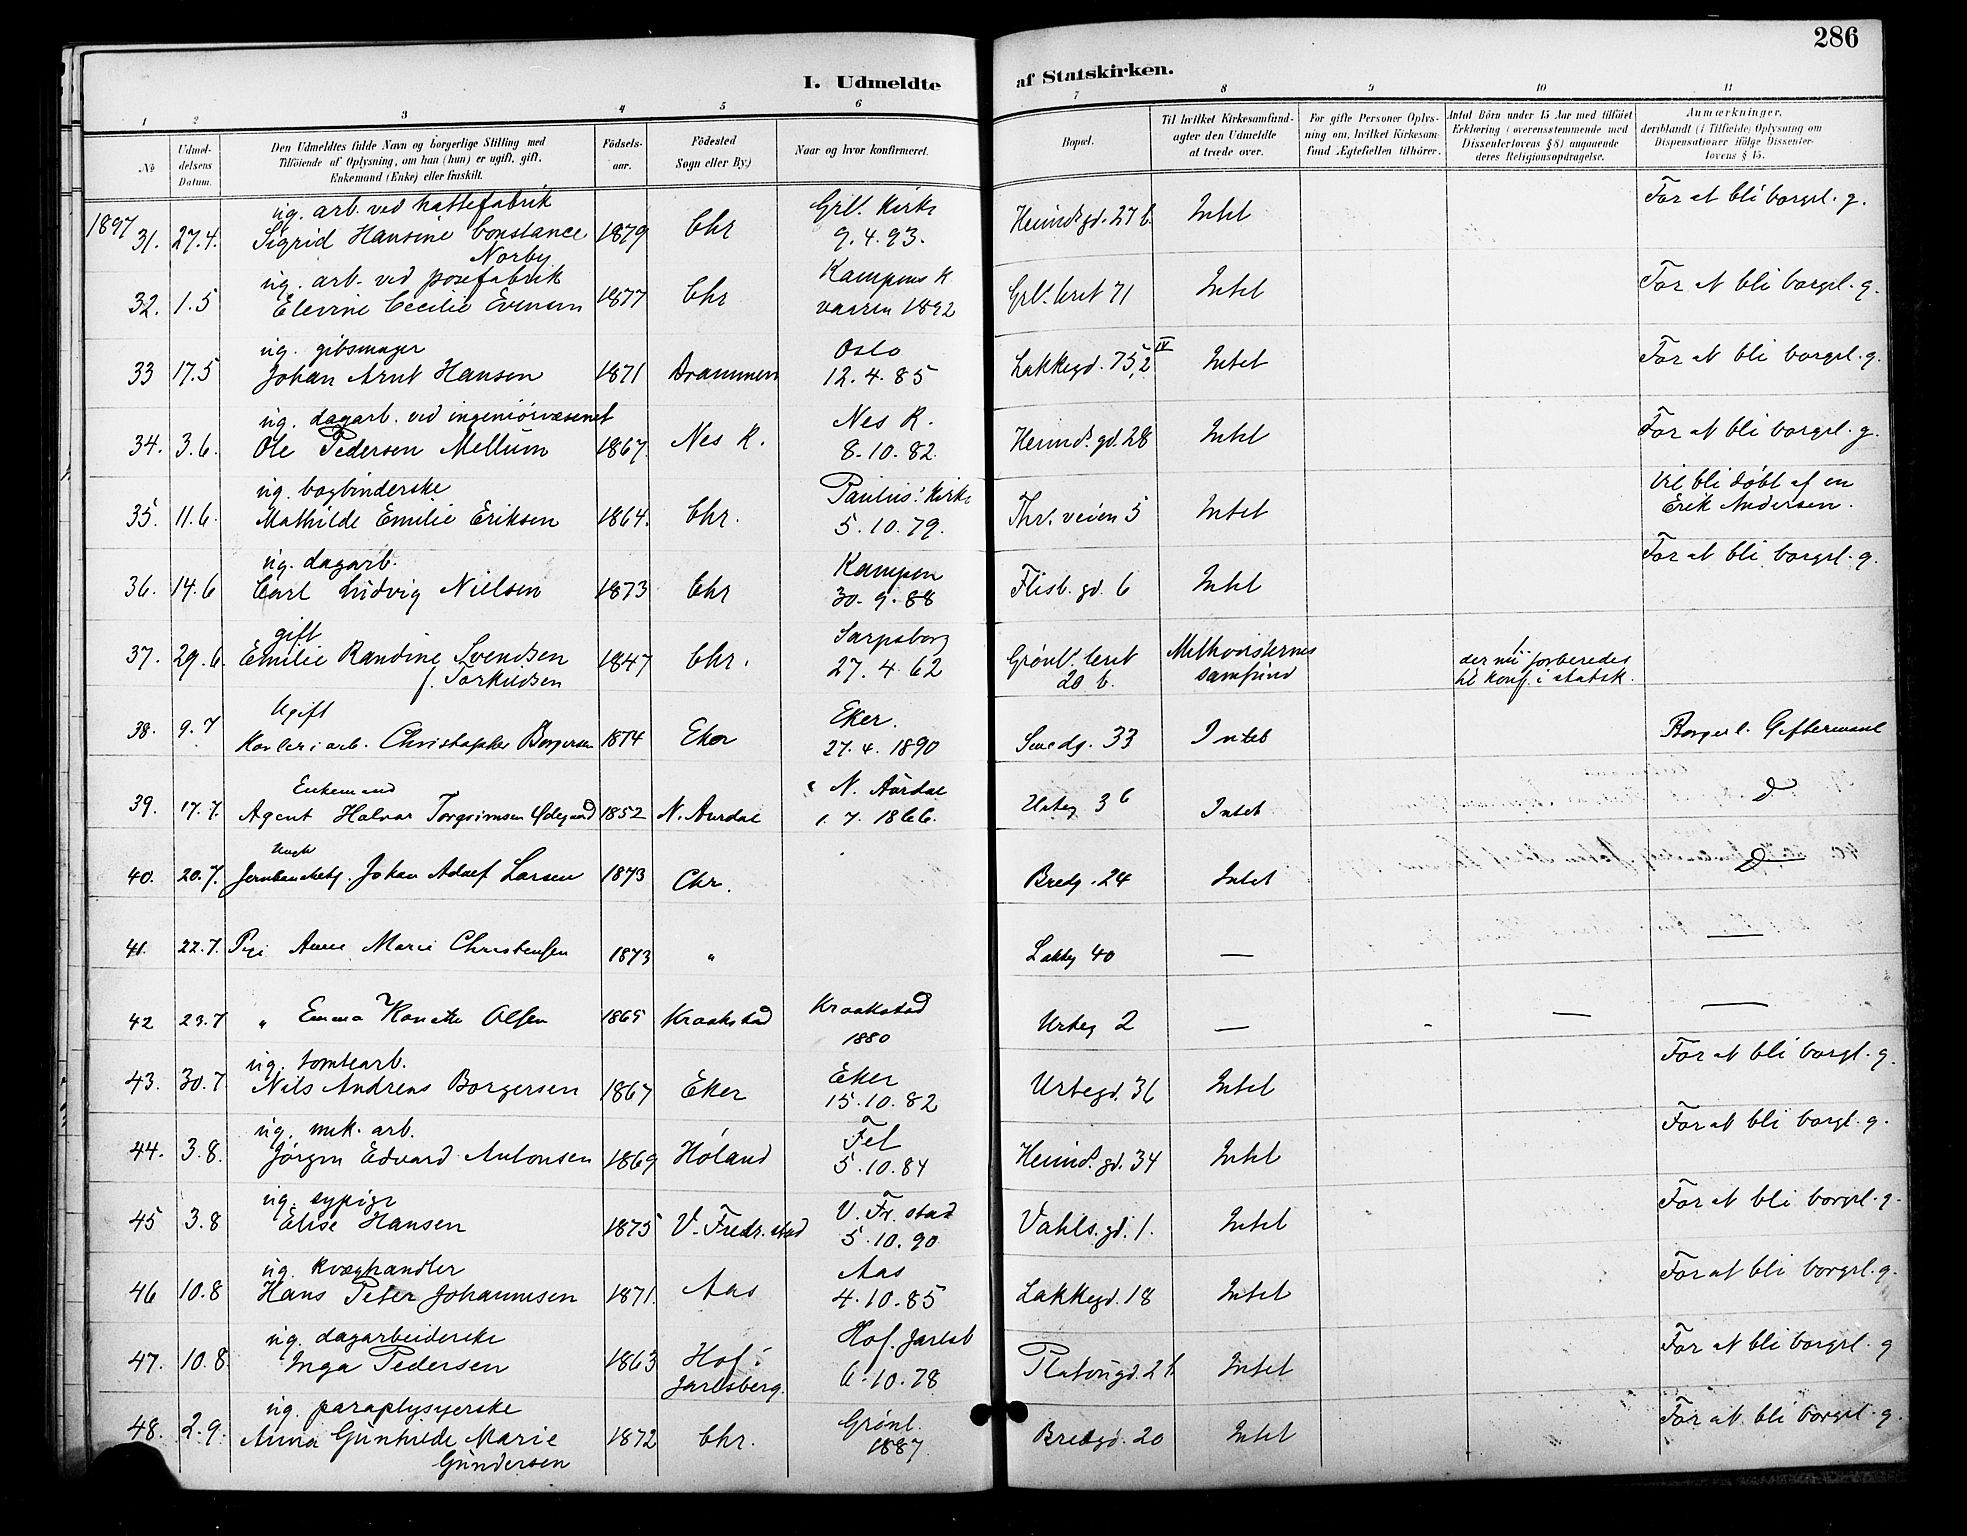 286
I. Udmeldte af Statskirken.
1 2 3 4 5 6 7 8 9 10 11
No
Udmeldelsens Datum.
Den Udmeldtes fulde Navn og borgerlige Stilling med
Tilföiende af Oplysning, om han (hun) er ugift, gift,
Enkemand (Enke) eller fraskilt.
Födselsaar.
Födested
Sogn eller By.)
Naar og hvor konfirmeret.
Bopæl.
Til hvilket Kirkesamfund
agter den Udmeldte
at træde over.
For gifte Personer Oplysning om, hvilket Kirkesamfund Ægtefællen tilhörer.
Antal Börn under 15 Aar med tilföiet
Erklæring (overensstemmende med
Dissenterlovens § 8) angaaende
deres Religionsopdragelse.
Anmærkninger,
deriblandt (i Tilfælde) Oplysning om
Dispensationer ifölge Dissenterlovens § 15.
1897
ug. arb. ved hattefabrik Grl. kirke For at bli borgrl. g.
31. 27.4. Sigrid Hansine Constance 1879 Chr 9.4.93. Heimd. gd. 27 b. Intet
Norby
ug. arb. ved posefabrik Kampens K For at bli borgrl. g.
32. 1.5 Elevine Cecilie Evensen 1877 Chr vaaren 1892 Grl. leret 71 Intet
ug. gibsmager Oslo For at bli borgrl. g.
33 17.5 Johan Arnt Hansen 1871 Drammen 12.4.85 Lakkegd. 75,2 IV Intet
ug. dagarb. ved ingeniörvæsenet Nes K. For at bli borgrl. g.
34. 3.6. Ole Pedersen Mellum 1867. Nes K. 8.10.82. Heimd. gd. 28 Intet
ug. bogbinderske Paulus' kirke Vil bli döbt af en
35. 11.6. Mathilde Emilie Eriksen 1864. Chr. 5.10.79. Thrl. veien 5 Intet Erik Andersen.
ug. dagarb. Kampen For at bli borgrl. g.
36. 14.6 Carl Ludvig Nielsen 1873 Chr 30.9.88 Flisb. gd. 6 Intet
gift Sarpsborg
37. 29.6. Emilie Randine Svendsen 1847 Chr. 27.4.62 Grönl. leret Methodisternes 1
f. Torkildsen 20 b. samfund der nu forberedes
til konf. i statsk.
Ugift Eker.
38. 9.7 arb. Christopher Borgersen 1874 Eker 27.4.1890 Smedg. 33 Intet Borgerl. Giftermaal
Enkemand N. Aurdal
39. 17.7. Agent Halvar Torgrimsen Ødegaard 1852 N. Aurdal 1.7.1866. Urteg 36 Intet D
Ungk
40. 20.7. Johan Adolf Larsen 1873 Chr. Bredg. 24 Intet D
41. 22.7. Pige Anne Marie Christensen 1873 " Lakkeg 40 — —
42 23.7 " Emma Olsen 1865 Kraakstad Kraakstad Urteg 2 — — —
1880
ug. tomtearb. Eker For at bli borgl. g.
43. 30.7. Nils Andreas Borgersen 1867 Eker 15.10.82 Urtegd. 36 Intet
ug. mek. arb. Fet For at bli borgl. g.
44. 3.8. Jörgen Edvard Antonsen 1869 Höland 5.10.84 Heimd. gd. 34 Intet
ug. sypige V. Fr. stad For at bli borgrl. g.
45 3.8 Elise Hansen 1875 V. Fredr. stad 5.10.90 Vahls. gd. 1. Intet
ug. kvæghandler Aas For at bli borgrl. g.
46 10.8 Hans Peter Johannesen 1871. Aas 4.10.85 Lakkegd. 18 Intet
ug. dagarbeiderske Hof. Jarlsb For at bli borgrl. g
47. 10.8. Inga Pedersen 1863 Hof i 6.10.78 Platougd. 2 b. Intet
Jarlsberg.
ug. paraplysyerske Grönl. For at bli borgrl. g.
48. 2.9. Anna Gunhilde Marie 1872 Chr. 1887. Bredgd. 20 Intet
Gundersen